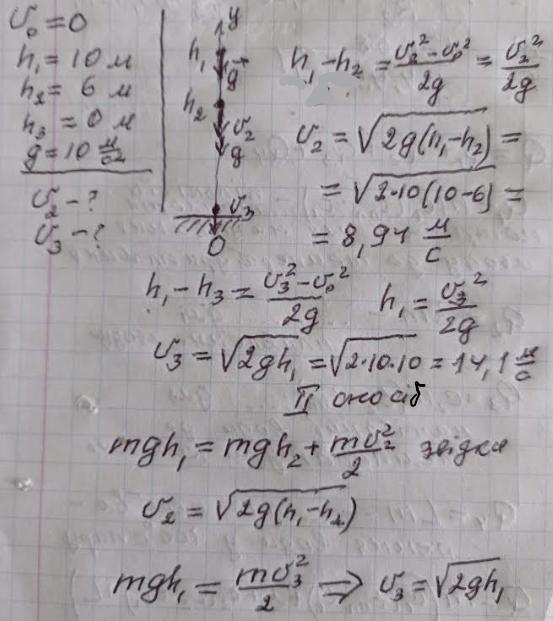 υ₀ = 0
h₁ = 10 м
h₂ = 6 м
h₃ = 0 м
g = 10 м/с²
υ₂ - ?
υ₃ - ?
y
h₁
g
h₂
υ₂
g
υ₃
0
h₁ - h₂ = (υ₂² - υ₀²)/2g = υ₂²/2g
υ₂ = √(2g(h₁-h₂)) =
= √(2·10(10-6)) =
= 8,94 м/с
h₁ - h₃ = (υ₃² - υ₀²)/2g h₁ = υ₃²/2g
υ₃ = √(2gh₁) = √(2·10·10) = 14,1 м/с
II спосіб
mgh₁ = mgh₂ + mυ₂²/2 звідки
υ₂ = √(2g(h₁-h₂))
mgh₁ = mυ₃²/2 ⇒ υ₃ = √(2gh₁)